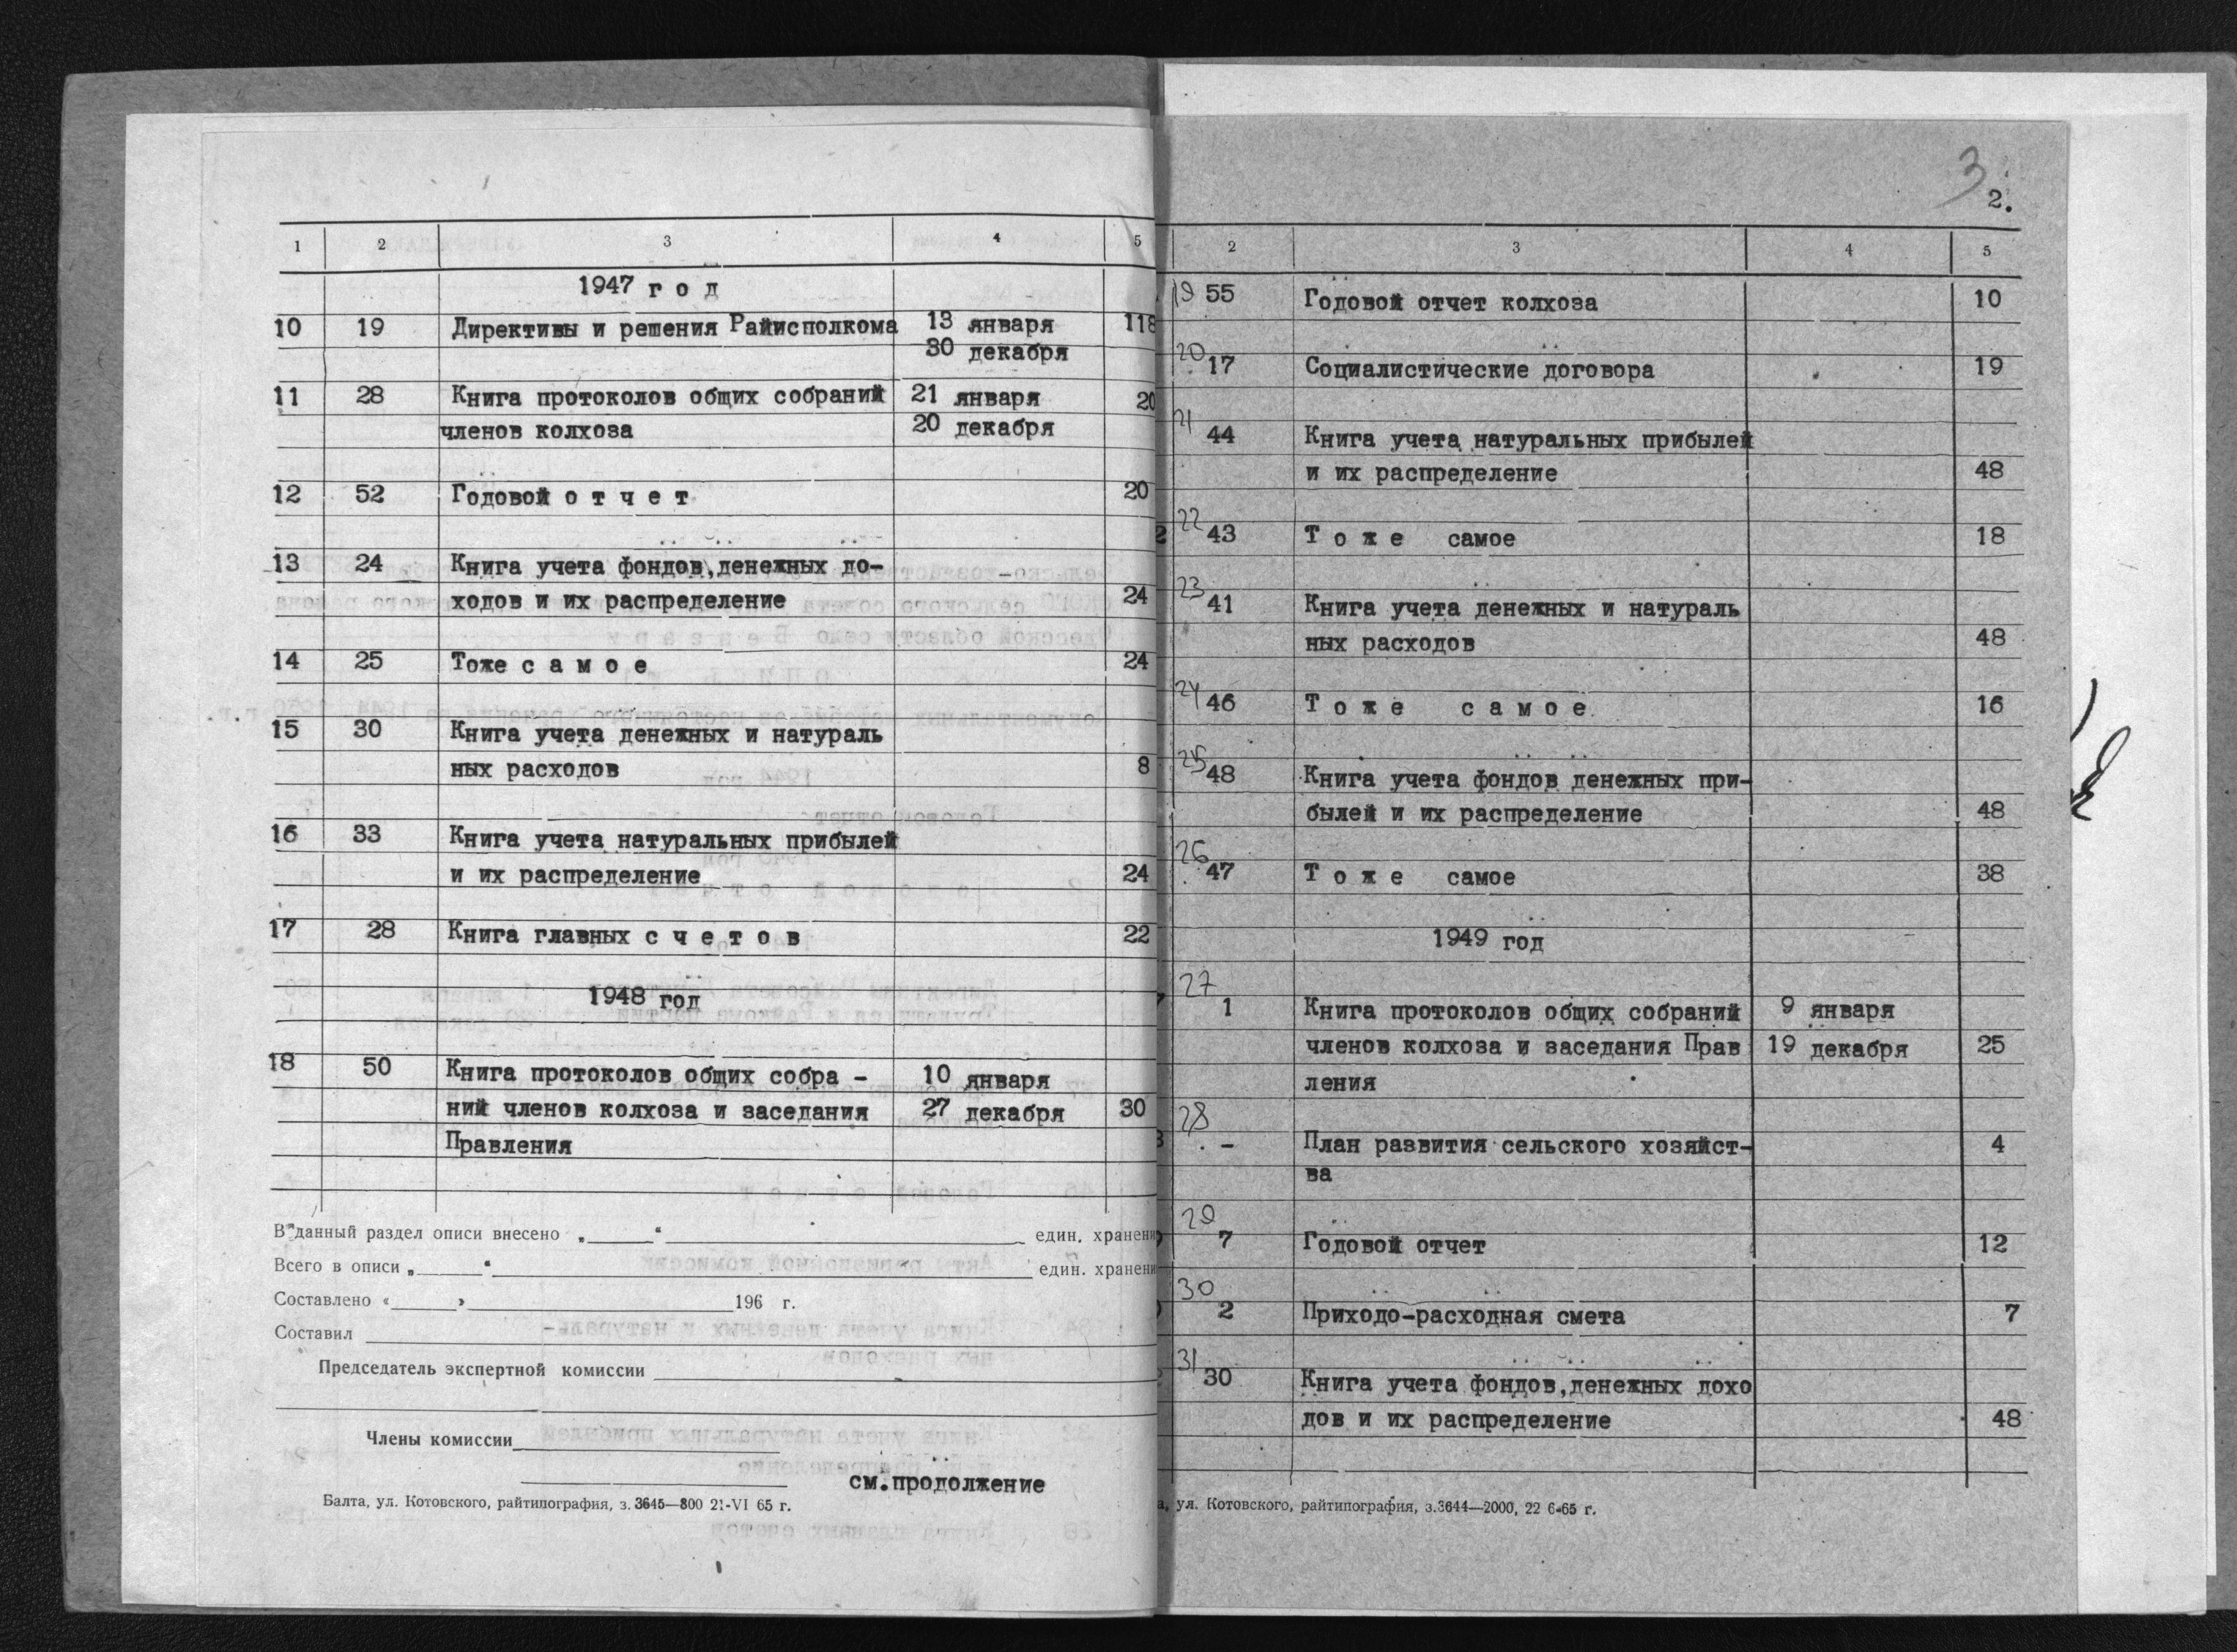 1 2 3 4 5
1947 г о д
10 19 Директивы и решения Райисполкома 13 января 118
30 декабря
11 28 Книга протоколов общих собраний 21 января 20
членов колхоза 20 декабря
12 52 Годовой о т ч е т 20
13 24 Книга учета фондов,денежных до-
ходов и их распределение 24
14 25 Тоже с а м о е 24
15 30 Книга учета денежных и натураль
ных расходов 8
16 33 Книга учета натуральных прибылей
и их распределение 24
17 28 Книга главных с ч е т о в 22
1948 год
18 50 Книга протоколов общих собра - 10 января
ний членов колхоза и заседания 27 декабря 30
Правления
В данный раздел описи внесено „ “ един. хранени
Всего в описи „ “ един. хранени
Составлено « » 196 г.
Составил
Председатель экспертной комиссии
Члены комиссии
см.продолжение
Балта, ул. Котовского, райтипография, з. 3645—800 21-VI 65 г.
3
2.
2 3 4 5
19 55 Годовой отчет колхоза 10
20 17 Социалистические договора 19
21 44 Книга учета натуральных прибылей
и их распределение 48
22 43 Т о ж е самое 18
23 41 Книга учета денежных и натураль
ных расходов 48
24 46 Т о ж е с а м о е 16
25 48 Книга учета фондов денежных при-
былей и их распределение 48
26 47 Т о ж е самое 38
1949 год
27 1 Книга протоколов общих собраний 9 января
членов колхоза и заседания Прав 19 декабря 25
ления
28 - План развития сельского хозяйст- 4
ва
29 7 Годовой отчет 12
30 2 Приходо-расходная смета 7
31 30 Книга учета фондов,денежных дохо
дов и их распределение 48
а, ул. Котовского, райтипография, з.3644—2000, 22 6-65 г.